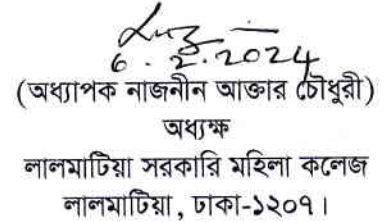 6.2.2024
(অধ্যাপক নাজনীন আক্তার চৌধুরী)
অধ্যক্ষ
লালমাটিয়া সরকারি মহিলা কলেজ
লালমাটিয়া, ঢাকা-১২০৭।